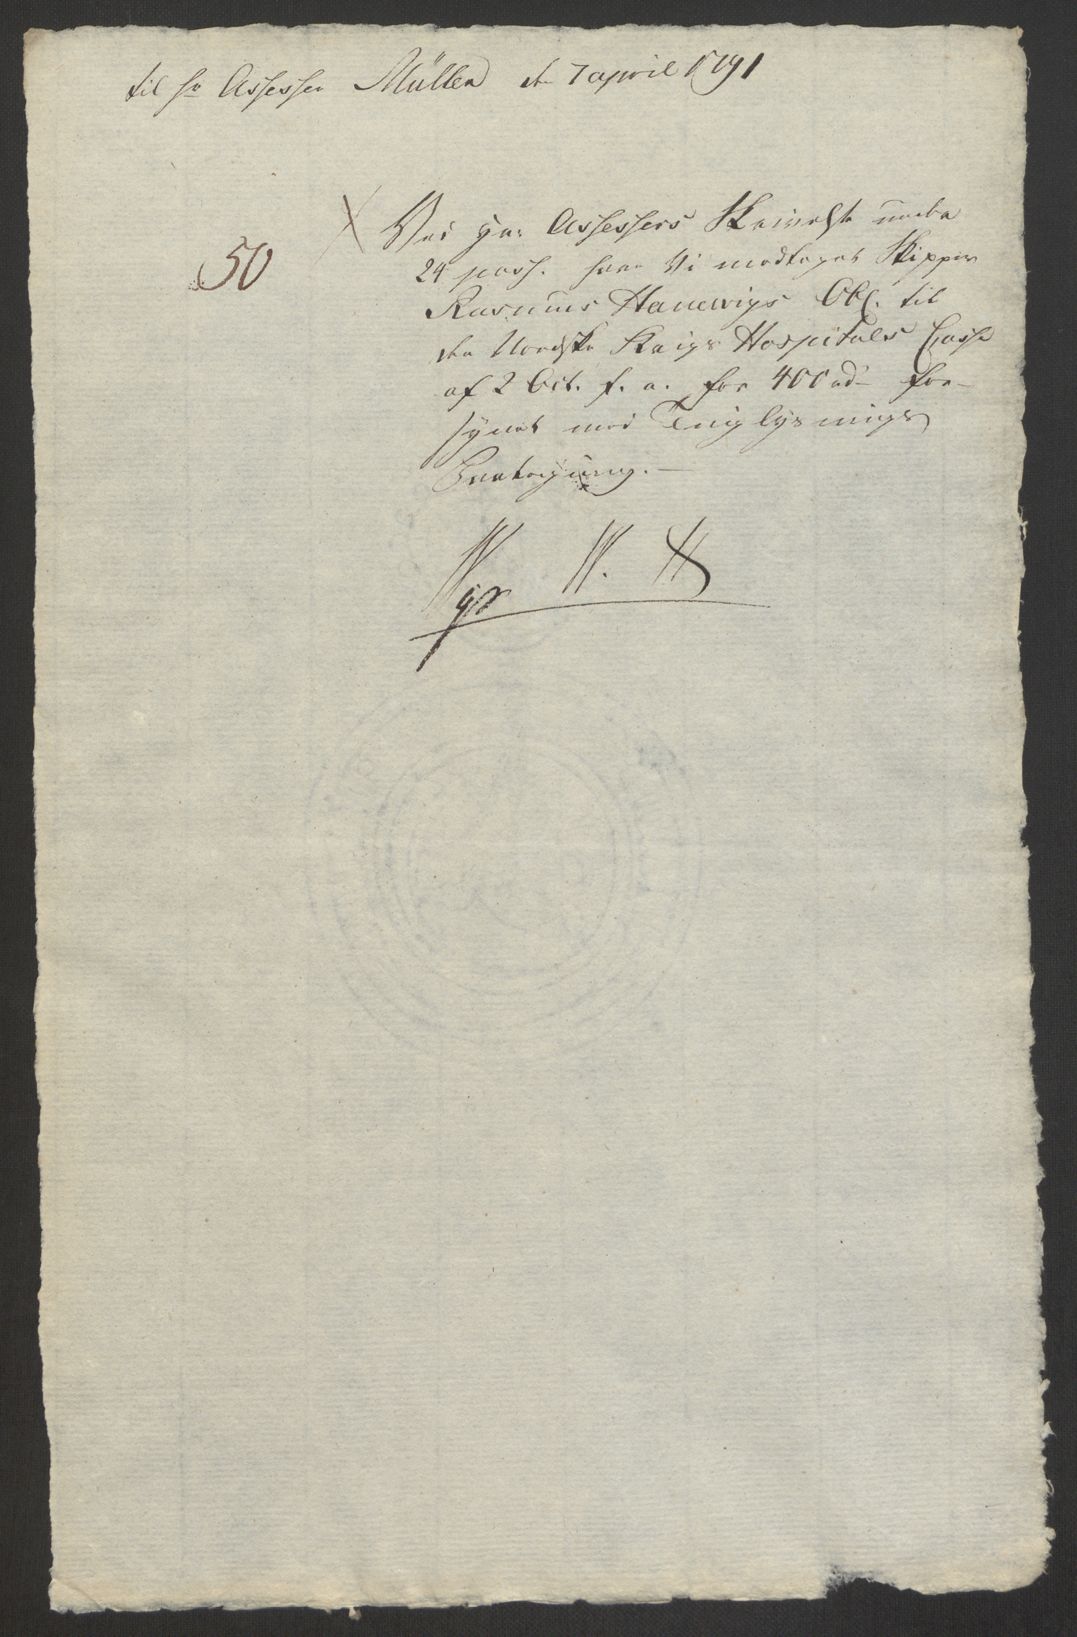 til Hr Assessor Müller d 7 april 1791
50
Ved Hr: Assessors Skrivelse under
24 pass. have Vi modtaget Skipper
Rasmus Hanewigs Obl. til
den Nordske Krigs Hospitals Casse
af 2 Oct. f. a. for 400 rd for-
synet med Tinglysnings
Paategning.
W. H